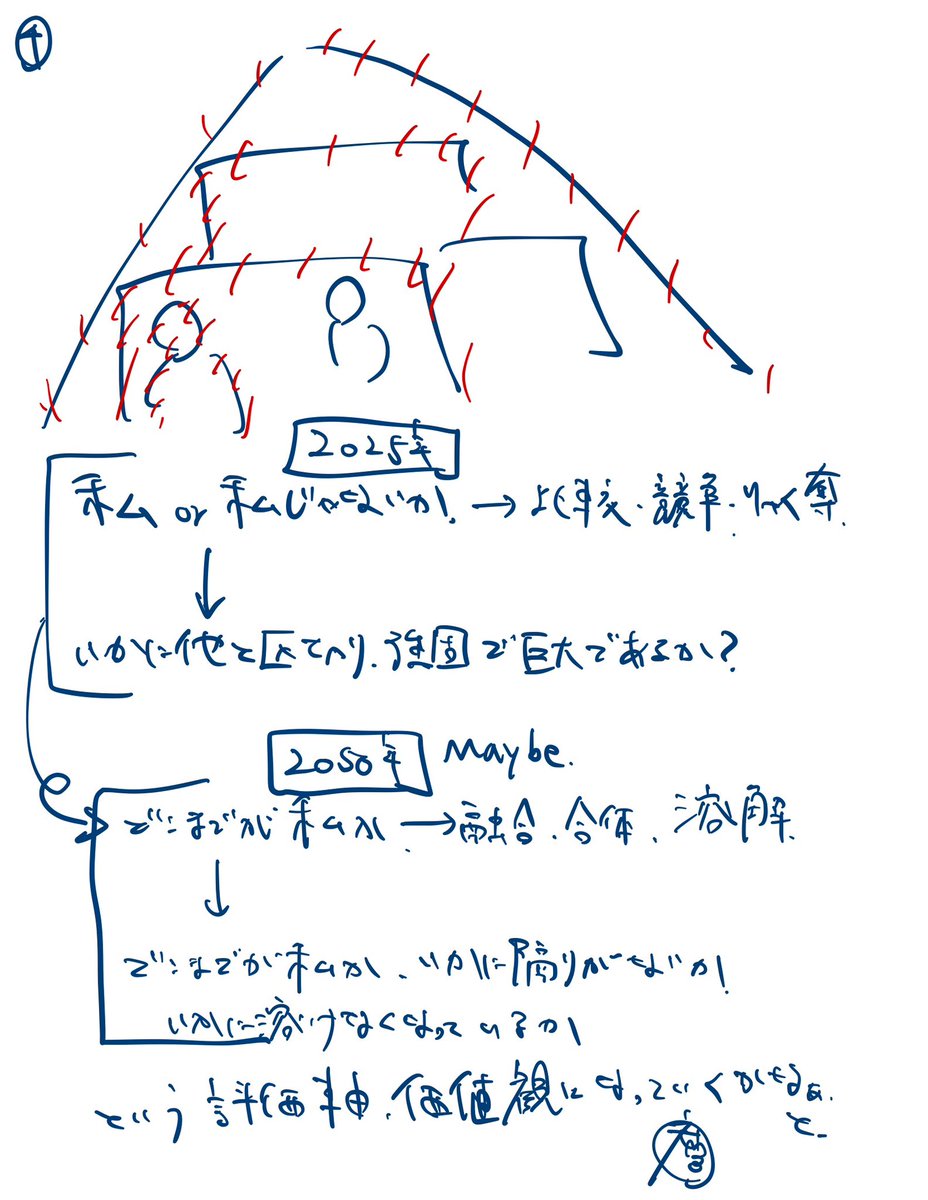 1
2025年
私 or 私じゃないか! → 比較・競争・りゃく奪
↓
いかに他と区てべり、強固で巨大であるか?
2050年 Maybe.
どこまでが私か → 融合、合体、溶解
↓
どこまでが私か、いかに隔りがないか!
いかに溶けてなくなっているか
という評価軸、価値観になっていくかなぁ
と.